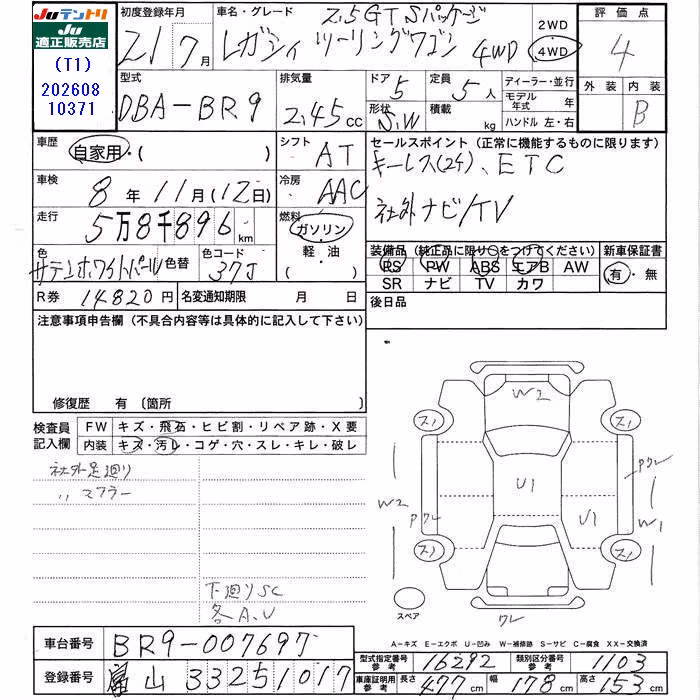 JUテントリ
JU
適正販売店
(T1)
202608
10371
初度登録年月
21 7月
車名・グレード
2.5GT Sパッケージ
レガシィ ツーリングワゴン 4WD
2WD
4WD
評価点
4
外装 内装
B
型式
DBA-BR9
排気量
2.45cc
ドア 5
形状 S.W
定員 5人
積載 kg
ディーラー・並行
モデル年式 年
ハンドル 左・右
車歴
自家用・( )
シフト AT
車検
8年11月(12日)
冷房 AAC
走行
5万8千896km
燃料
ガソリン
軽・油
( )
色
サテンホワイトパール
色替
色コード
37J
R券 14820円
名変通知期限 月 日
セールスポイント(正常に機能するものに限ります)
キーレス(2ケ)、ETC
社外ナビ/TV
装備品(純正品に限り○をつけてください)
PS PW ABS エアB AW
SR ナビ TV カワ
新車保証書
有・無
後日品
注意事項申告欄(不具合内容等は具体的に記入して下さい)
修復歴 有(箇所
検査員記入欄
FW キズ・飛石・ヒビ割・リペア跡・X要
内装 キズ・汚レ・コゲ・穴・スレ・キレ・破レ
社外足廻り
〃 マフラー
下廻りSC
各A、U
W2
スノ
スノ
U1
U1
W2
Pワレ
Pワレ
W1
スノ
スノ
スペア
ワレ
A-キズ E-エクボ U-凹み W-補修跡 S-サビ C-腐食 XX-交換済
車台番号 BR9-007697
登録番号 富山 332 51017
型式指定番号参考 16292
類別区分番号参考 1103
車庫証明用参考 長さ 477cm 幅 178cm 高さ 153cm